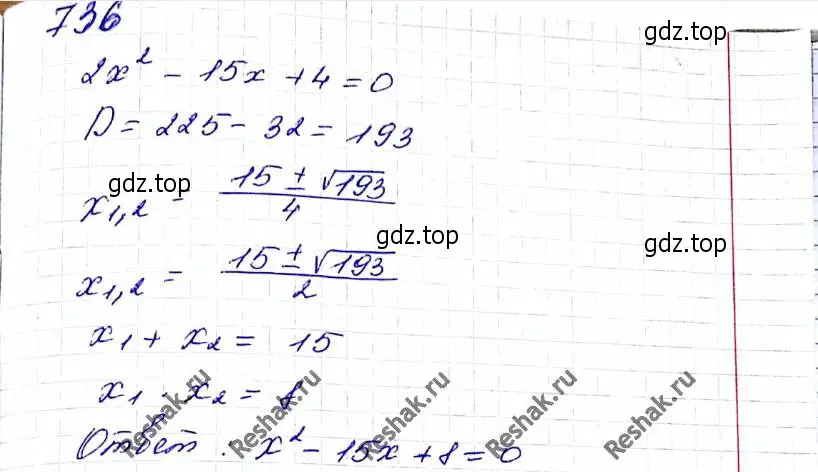 736
gdz.top
2x² - 15x + 4 = 0
D = 225 - 32 = 193
gdz.top
x₁,₂ = (15 ± √193)/4
gdz.top
x₁,₂ = (15 ± √193)/2
gdz.top
x₁ + x₂ = 15
x₁ · x₂ = 8
Ответ: x² - 15x + 8 = 0
Reshak.ru
Reshak.ru
Reshak.ru
Reshak.ru
Reshak.ru